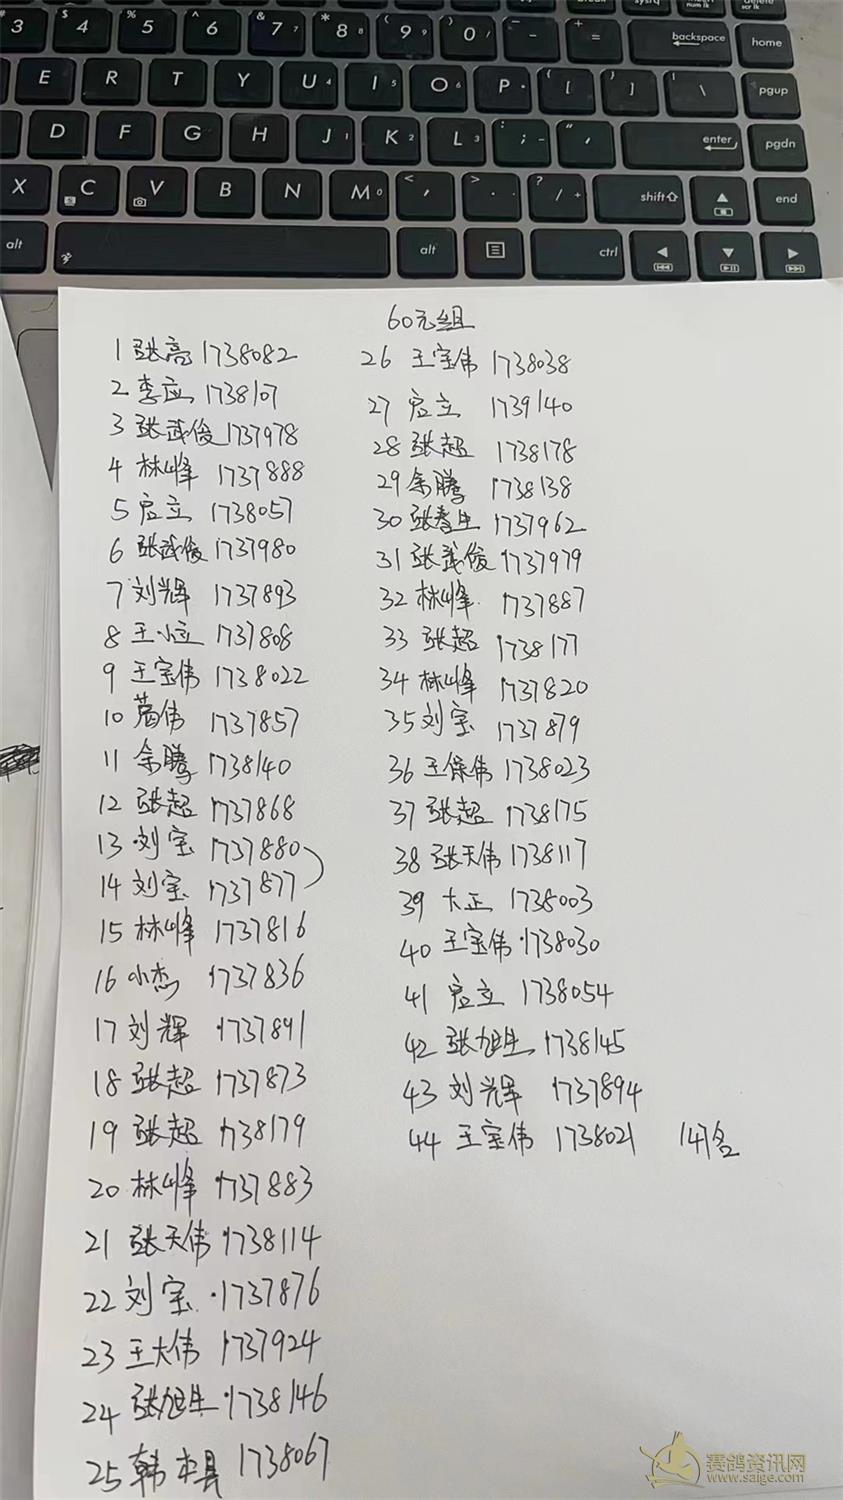 # 3 $ 4 % 5 ^ 6 & 7 7 * 8 8 ( 9 9 ) 0 / _ - + = backspace home
E R T Y U 4 I 5 O 6 P * { [ } ] | \ pgup
D F G H J 1 K 2 L 3 : ; - " ' enter pgdn
X C V B N M 0 < , > . . ? / + shift end
alt alt ctrl
60元组
1 张高 1738082
2 李应 1738107
3 张武俊 1737978
4 林峰 1737888
5 应立 1738057
6 张武俊 1737980
7 刘辉 1737893
8 王小立 1737808
9 王宝伟 1738022
10 葛伟 1737857
11 余腾 1738140
12 张超 1737868
13 刘宝 1737880
14 刘宝 1737877
15 林峰 1737816
16 小杰 1737836
17 刘辉 1737891
18 张超 1737873
19 张超 1738179
20 林峰 1737883
21 张天伟 1738114
22 刘宝 1737876
23 王大伟 1737924
24 张旭生 1738146
25 韩 1738067
26 王宝伟 1738038
27 应立 1739140
28 张超 1738178
29 余腾 1738138
30 张春生 1737962
31 张武俊 1737979
32 林峰 1737887
33 张超 1738177
34 林峰 1737820
35 刘宝 1737879
36 王保伟 1738023
37 张超 1738175
38 张天伟 1738117
39 大正 1738003
40 王宝伟 1738030
41 应立 1738054
42 张旭生 1738145
43 刘辉 1737894
44 王宝伟 1738021 147名
赛鸽资讯网
www.saige.com